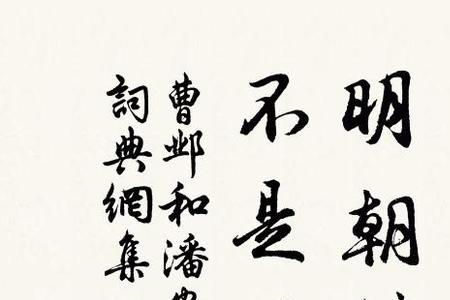 明朝
不是
曹邺和潘
詞典網集